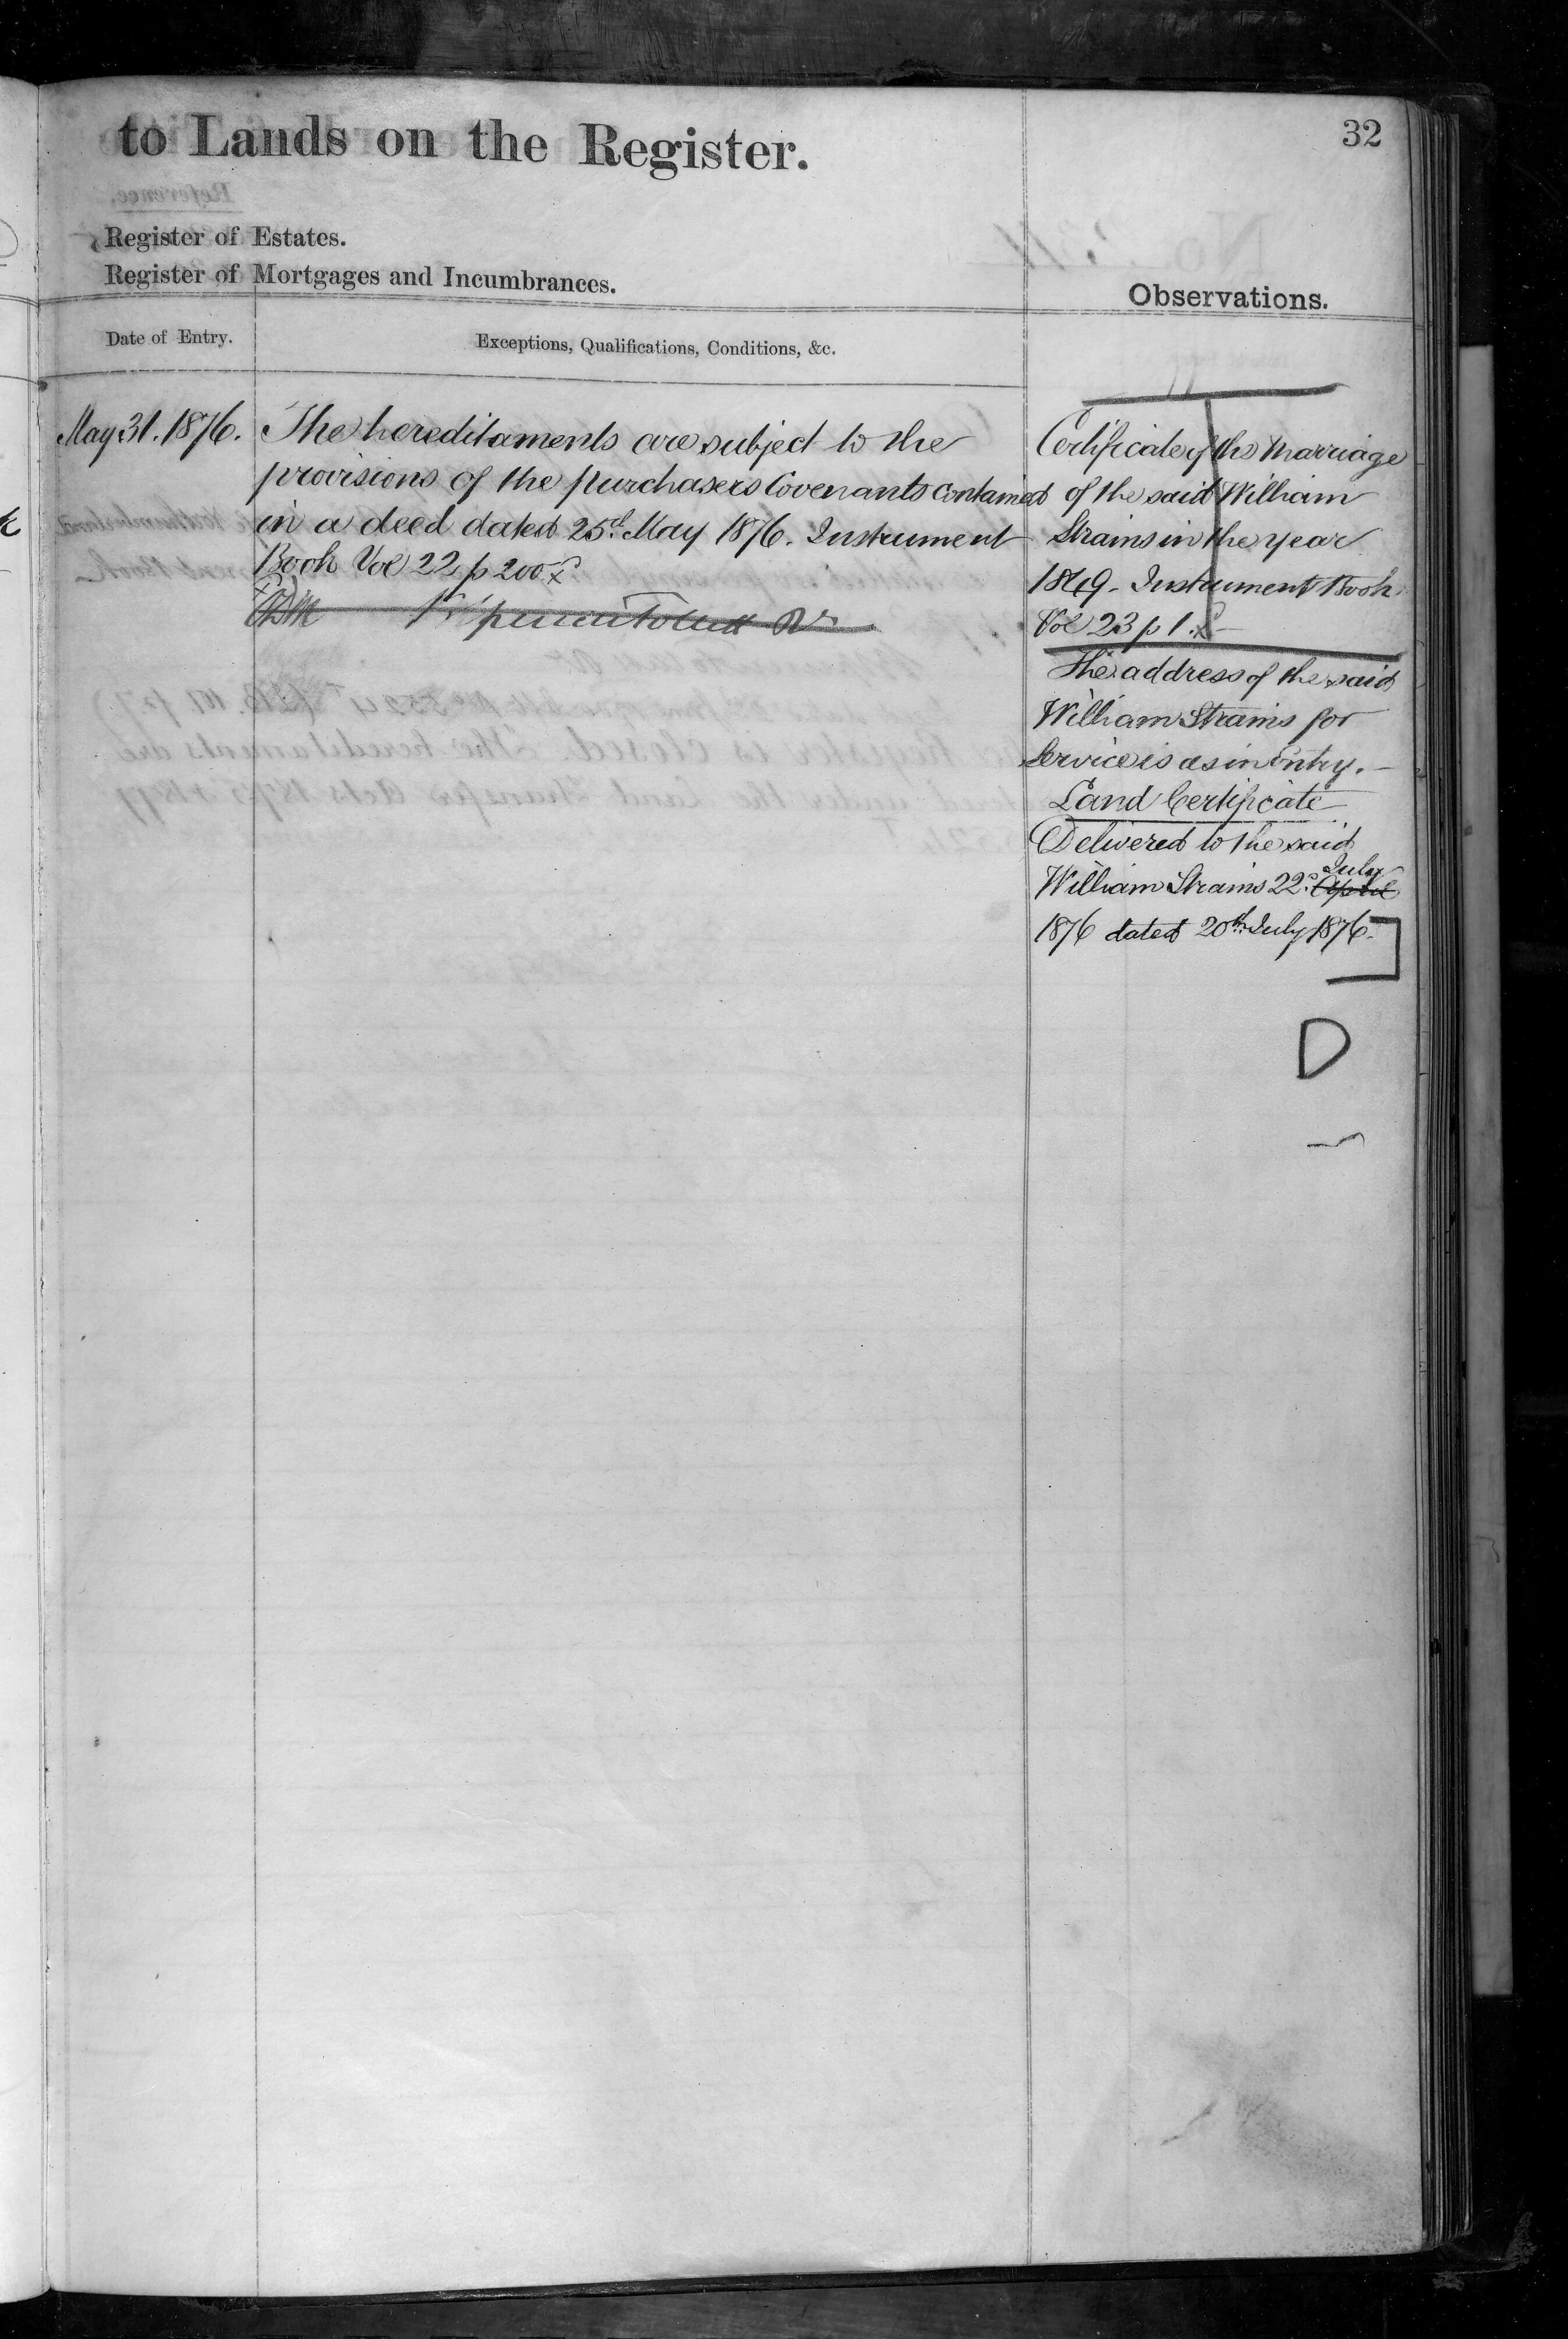 to Lands on the Register.
32
Register of Estates.
Register of Mortgages and Incumbrances.
Observations.
Date of Entry.
Exceptions, Qualifications, Conditions, &c.
May 31. 1876.
The hereditaments are subject to the
provisions of the purchasers Covenants contained
in a deed dated 25th May 1876. Instrument
Book Vol 22 p 200
Certificate of the Marriage
of the said William
Strains in the year
1849. Instrument Book
Vol 23 p 1.
The address of the said
William Strains for
Service is as in Entry.
Land Certificate
Delivered to the said
July
William Strains 22nd April
1876 dated 20th July 1876.
D